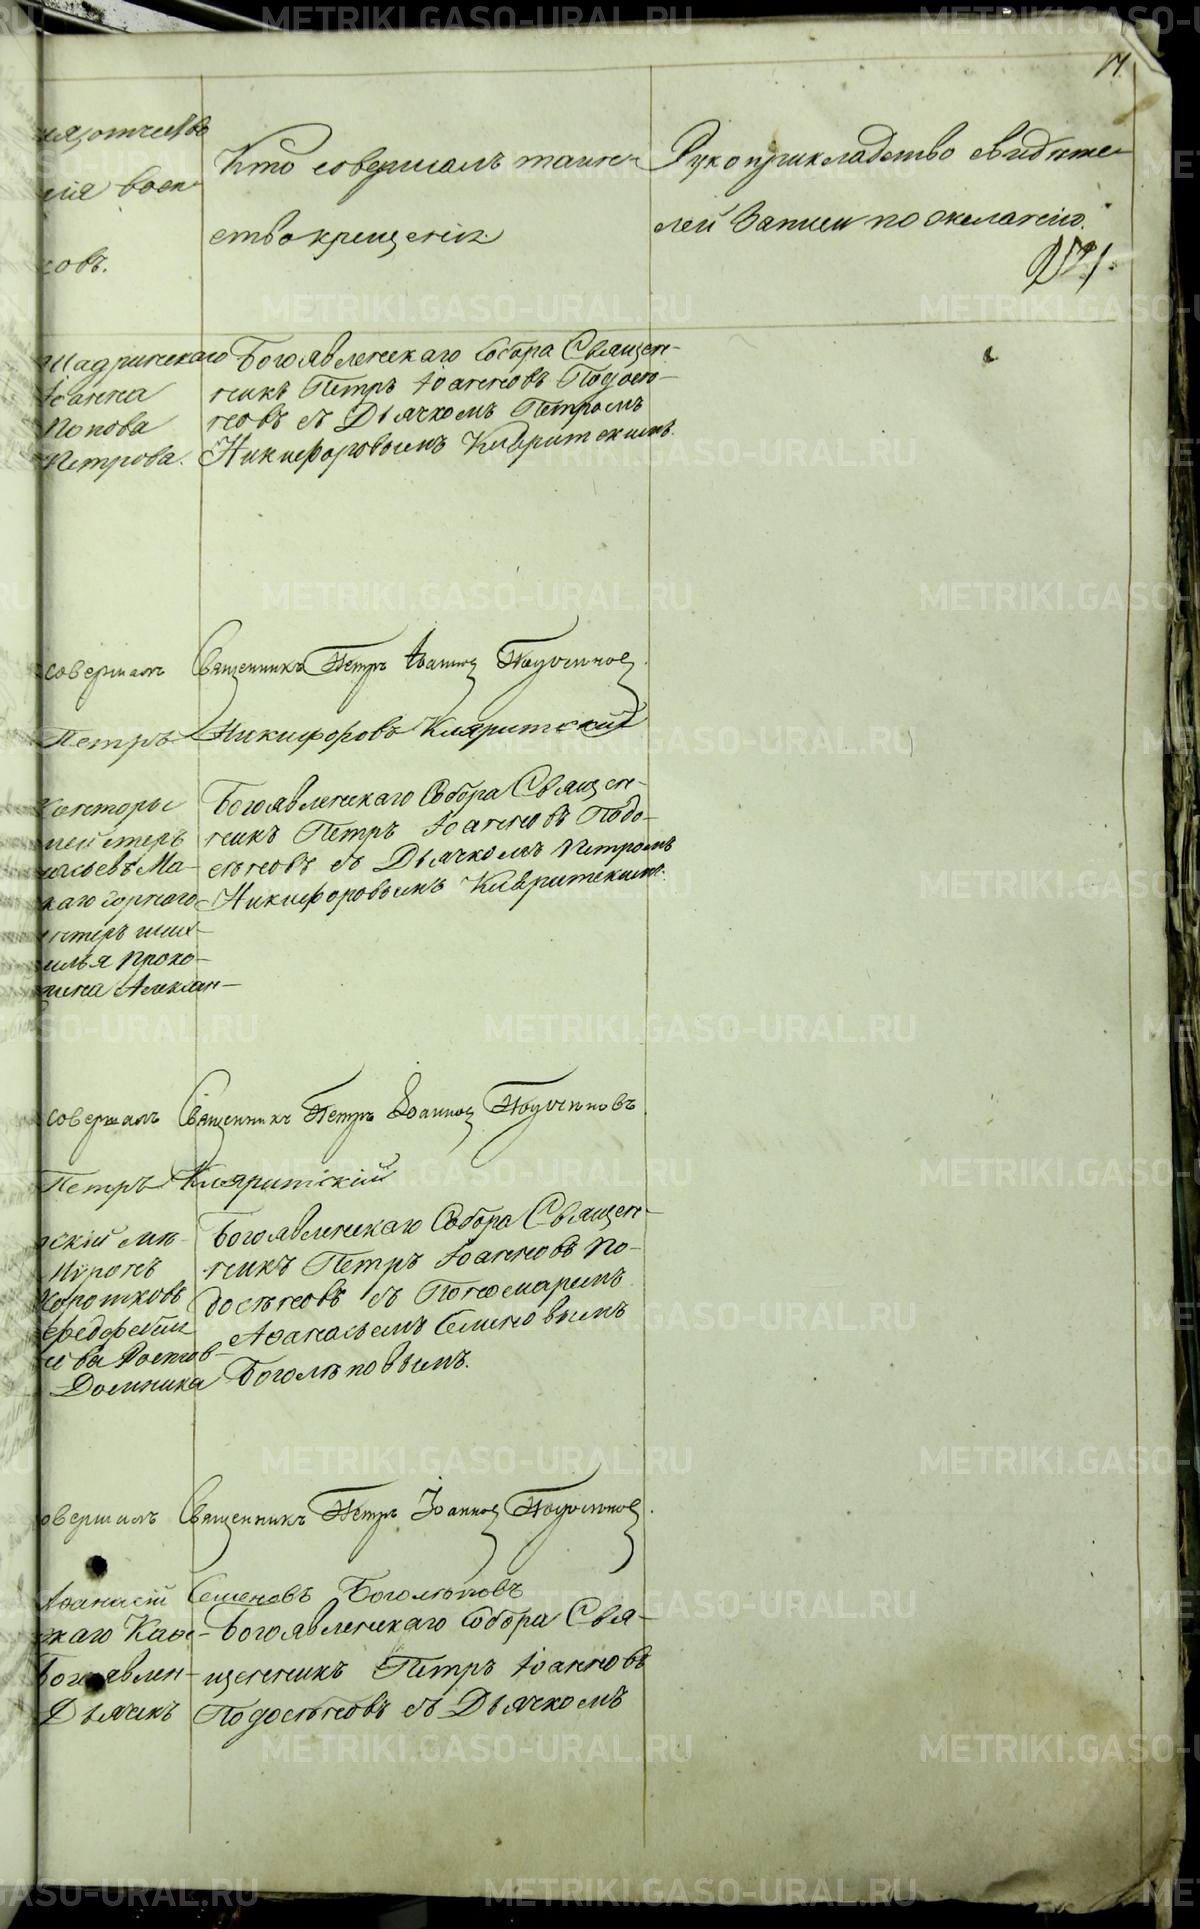 17.
Кто совершалъ таин-
ство крещенія
Рукоприкладство свидѣте-
лей записи по желанію.
совъ.
Шадринскаго
Іоанна
Попова
Петрова.
Богоявленскаго Собора Священ-
никъ Петръ Іоанновъ Подосе-
новъ съ Дьячкомъ Петромъ
Никифоровымъ Кляритскимъ.
совершалъ Священникъ Петръ Іоанновъ Подосеновъ.
Петръ Никифоровъ Кляритскій
Конторы
мейстеръ
Ма-
каго горнаго
илья Прохо-
Богоявленскаго Собора Священ-
никъ Петръ Іоанновъ Подо-
сѣновъ съ Дьячкомъ Петромъ
Никифоровымъ Кляритскимъ.
совершалъ Священникъ Петръ Іоанновъ Подосеновъ
Петръ Кляритскій
Коротковъ
Домника
Богоявленскаго Собора Священ-
никъ Петръ Іоанновъ По-
досѣновъ съ Пономаремъ
Аѳанасьемъ Семеновымъ
Боголѣповымъ.
совершалъ Священникъ Петръ Іоанновъ Подосеновъ.
Аѳанасій Семеновъ Боголѣповъ
Богоявлен-
Дьячекъ
Богоявленскаго Собора Свя-
щенникъ Петръ Іоанновъ
Подосѣновъ съ Дьячкомъ
METRIKI.GASO-URAL.RU